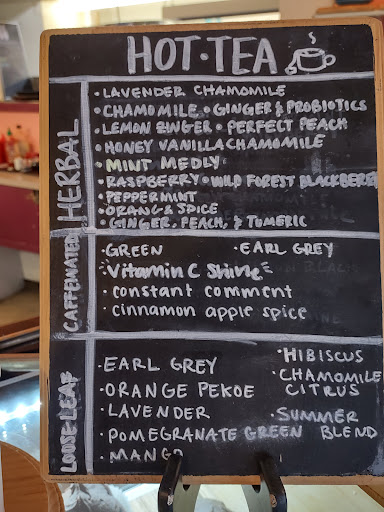 HOT • TEA
HERBAL
• LAVENDER CHAMOMILE
• CHAMOMILE • GINGER & PROBIOTICS
• LEMON ZINGER • PERFECT PEACH
• HONEY VANILLA CHAMOMILE
• MINT MEDLY
• RASPBERRY • WILD FOREST BLACKBERRY
• PEPPERMINT
• ORANGE SPICE
• GINGER, PEACH, & TUMERIC
CAFFEINATED
• GREEN • EARL GREY
• Vitamin C Shine
• constant comment
• cinnamon apple spice
LOOSE LEAF
• EARL GREY
• ORANGE PEKOE
• LAVENDER
• POMEGRANATE GREEN
• MANGO
• HIBISCUS
• CHAMOMILE
CITRUS
• SUMMER
BLEND